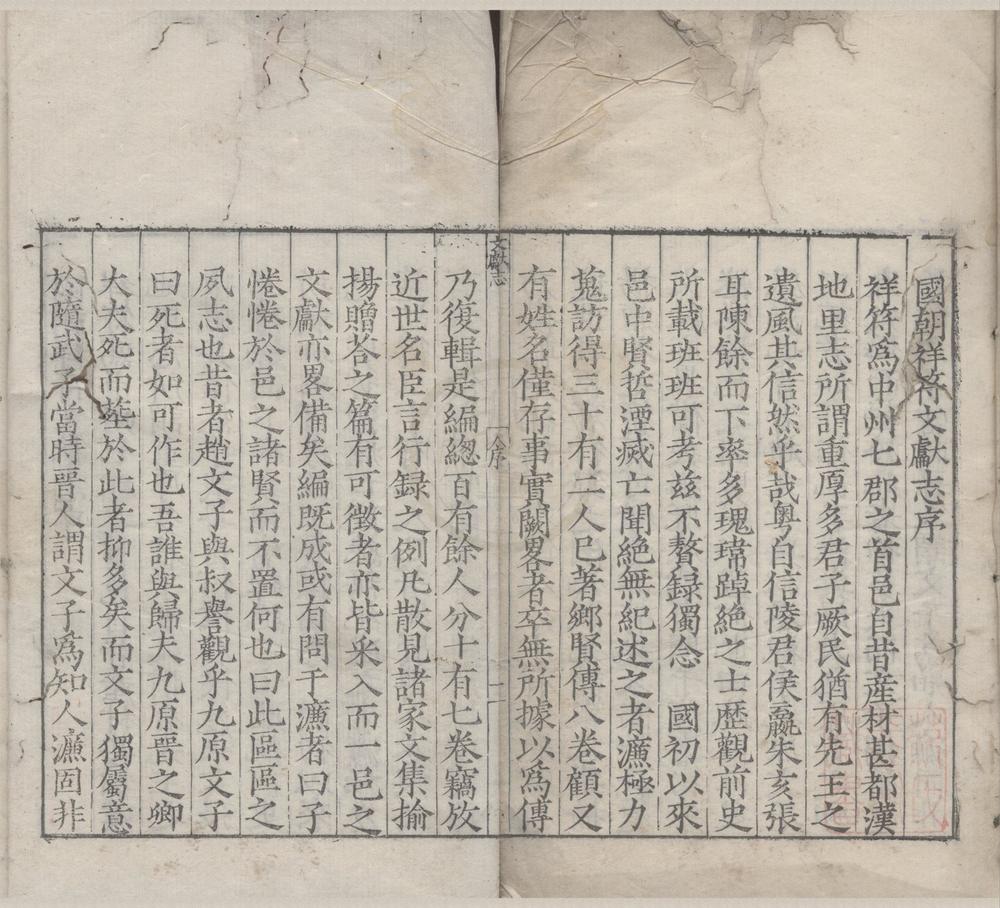 國朝祥符文獻志序
祥符爲中州七郡之首邑自昔産材甚都漢
地里志所謂重厚多君子厥民猶有先王之
遺風其信然乎哉粤自信陵君侯嬴朱亥張
耳陳餘而下率多瑰瑋踔絶之士歴觀前史
所載班班可考兹不贅録獨念　國初以來
邑中賢哲湮滅亡聞絶無紀述之者濂極力
蒐訪得三十有二人巳著鄉賢傳八卷顧又
有姓名僅存事實闕畧者卒無所據以爲傳
文獻志
序
一
乃復輯是編緫百有餘人分十有七卷竊攷
近世名臣言行録之例凡散見諸家文集揄
揚贈荅之篇有可徵者亦皆采入而一邑之
文獻亦畧備矣編既成或有問于濂者曰子
惓惓於邑之諸賢而不置何也曰此區區之
夙志也昔者趙文子與叔譽觀乎九原文子
曰死者如可作也吾誰與歸夫九原晉之卿
大夫死而塟於此者抑多矣而文子獨屬意
於隨武子當時晉人謂文子爲知人濂固非